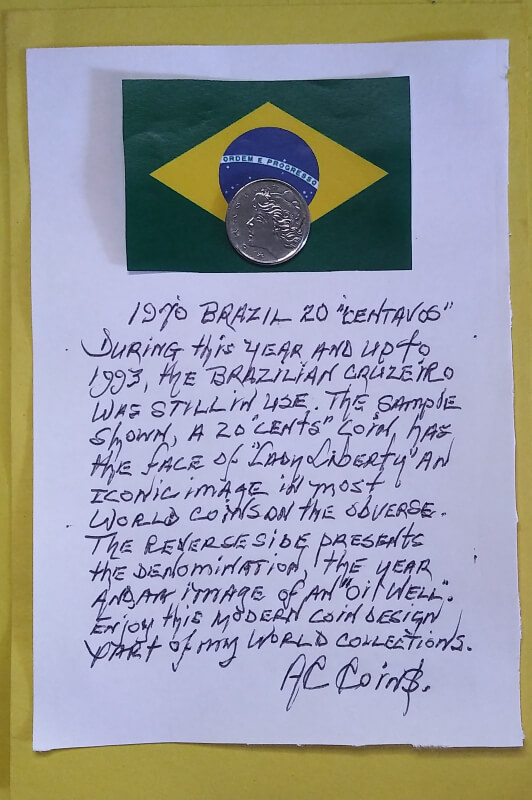 ORDEM E PROGRESSO
1970 BRAZIL 20 "CENTAVOS"
DURING this YEAR AND up to
1993, the BRAZILIAN CRUZEIRO
WAS STILL IN USE. THE SAMPLE
SHOWN, A 20 "CENTS" COIN has
the FACE OF "LADY LIBERTY" AN
ICONIC IMAGE in most
WORLD COINS ON the OBVERSE.
THE REVERSE SIDE PRESENTS
the DENOMINATION, the YEAR
AND, AN IMAGE of AN "Oil WELL".
ENJOY this MODERN COIN DESIGN
PART of my WORLD COLLECTIONS.
AC Coin$.